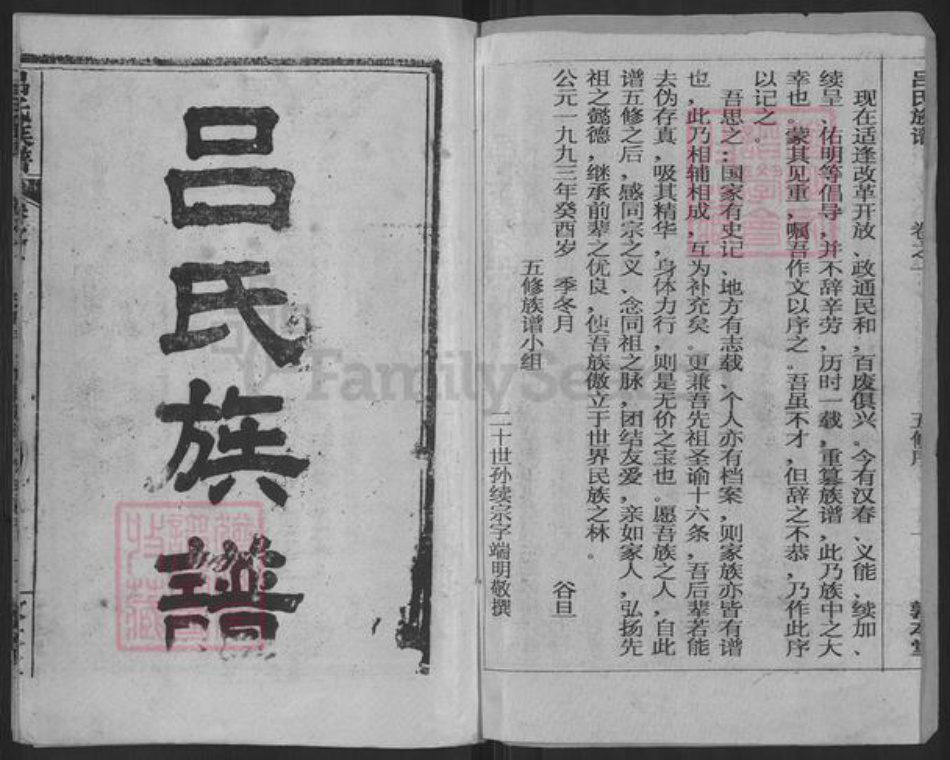 吕氏族谱
卷之
五修序
敦本堂
现在适逢改革开放、政通民和，百废俱兴。今有汉春、义能、续加、
续呈、佑明等倡导，并不辞辛劳，历时一载，重篡族谱，此乃族中之大
幸也。蒙其见重，嘱吾作文以序之。吾虽不才，但辞之不恭，乃作此序
以记之。
吾思之：国家有史记、地方有志载、个人亦有档案，则家族亦皆有谱
也，此乃相辅相成，互为补充矣。更兼吾先祖圣谕十六条，吾后辈若能
去伪存真，吸其精华，身体力行，则是无价之宝也。愿吾族之人，自此
谱五修之后，感同宗之义、念同祖之脉，团结友爱，亲如家人，弘扬先
祖之懿德，继承前辈之优良，使吾族傲立于世界民族之林。
公元一九九三年癸酉岁　季冬月　谷旦
五修族谱小组
二十世孙续宗字端明敬撰
吕氏族譜
FamilySe